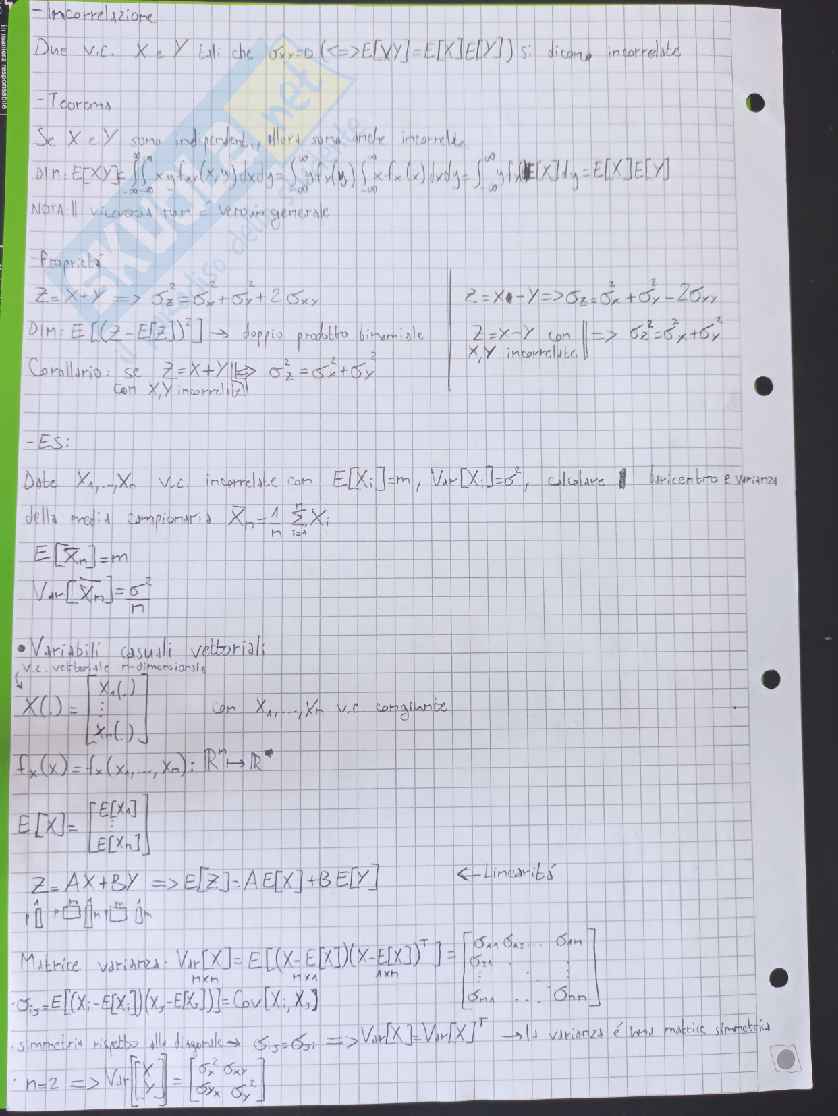 -Incorrelazione
Due v.c. X e Y tali che σxy=0 (<=>E[XY]=E[X]E[Y]) si dicono incorrelate
-Teorema
Se X e Y sono indipendenti, allora sono anche incorrelate
DIM: E[XY]=∫∫xyfxy(x,y)dxdy=∫yfy(y)∫xfx(x)dxdy=∫yfy(y)E[X]dy=E[X]E[Y]
NOTA il viceversa non è vero in generale
-Proprietà
Z=X+Y => σz²=σx²+σy²+2σxy
Z=X-Y=>σz²=σx²+σy²-2σxy
DIM: E[(Z-E[Z])²] → doppio prodotto binomiale
Z=X-Y con X,Y incorrelate => σz²=σx²+σy²
Corollario: se Z=X+Y => σz²=σx²+σy²
con X,Y incorrelate
-ES:
Date X1,...,Xn v.c. incorrelate con E[Xi]=m, Var[Xi]=σ², calcolare baricentro e varianza
della media campionaria X̄n=1/n Σ(i=1,n) Xi
E[X̄n]=m
Var[X̄n]=σ²/n
• Variabili casuali vettoriali
v.c. vettoriale n-dimensionale
X(.)=[X1(.) ⋮ Xn(.)] con X1,...,Xn v.c. congiunte
fx(x)=fx(x1,...,xn): ℝⁿ↦ℝ
E[X]=[E[X1] ⋮ E[Xn]]
Z=AX+BY =>E[Z]=AE[X]+BE[Y] <-Linearità
Matrice varianza: Var[X]=E[(X-E[X])(X-E[X])ᵀ]=[σ11 σ12 ... σ1n σ21 ⋮ σn1 ... σnn]
n×n n×1 1×n
·σij=E[(Xi-E[Xi])(Xj-E[Xj])]=Cov[Xi,Xj]
·simmetria rispetto alla diagonale→ σij=σji =>Var[X]=Var[X]ᵀ →la varianza è una matrice simmetrica
·n=2 => Var[X Y]=[σx² σxy σyx σy²]
SKUOLA.net
il paradiso dello studente